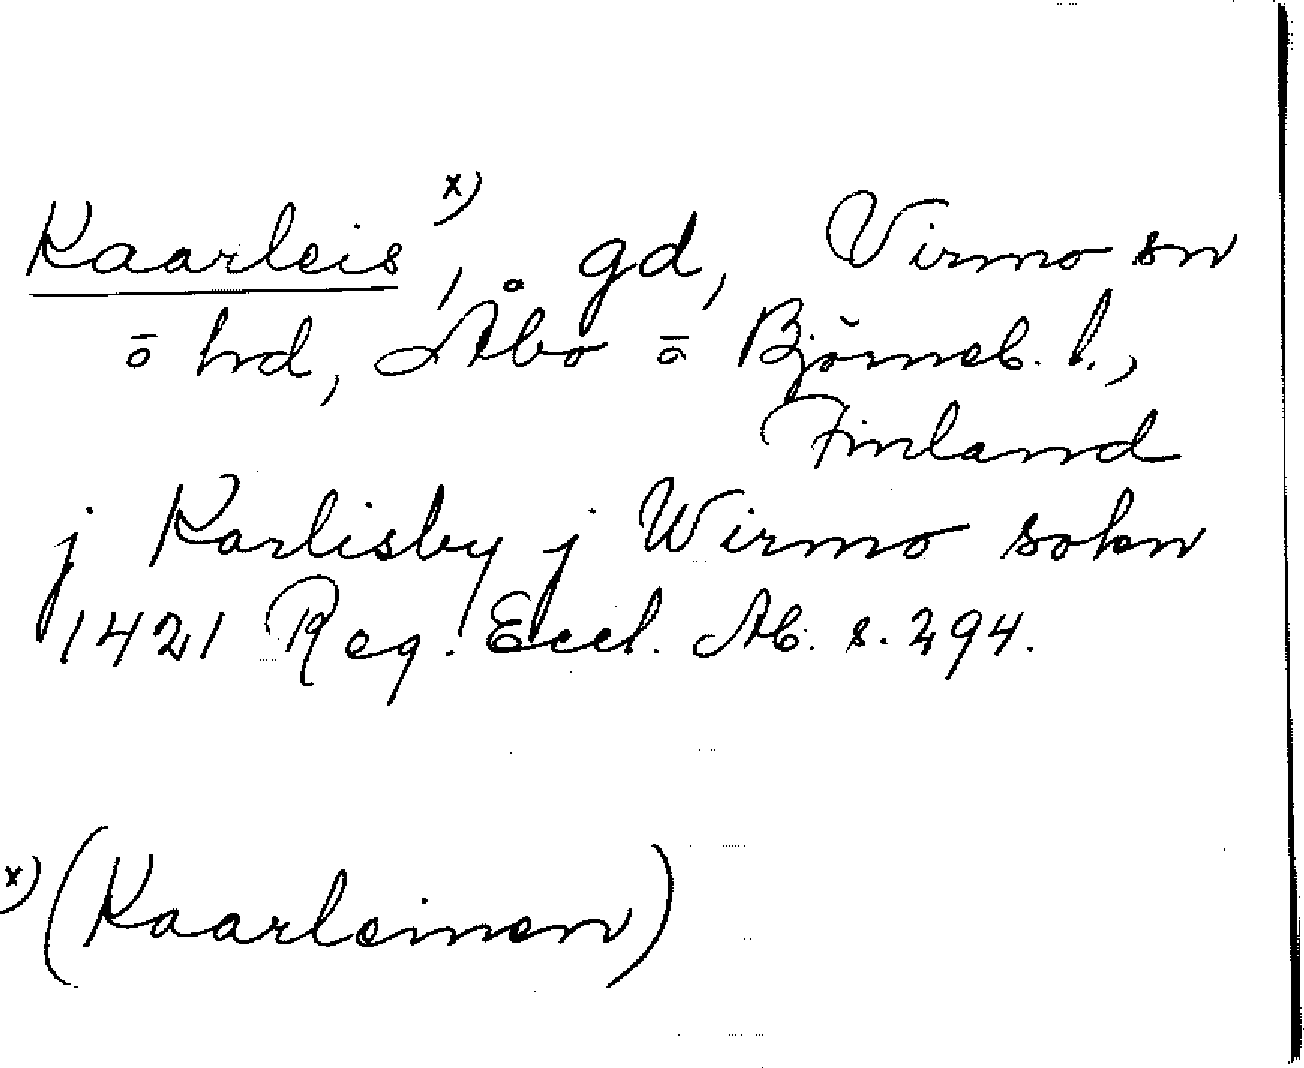 Kaarleis x), gd, Virmo sn
o hd, Åbo o Björneb. l.,
Finland
j Karlisby j Wirmo sokn
1421 Reg. Eccl. Ab. s. 294.
x) (Kaarleinen)